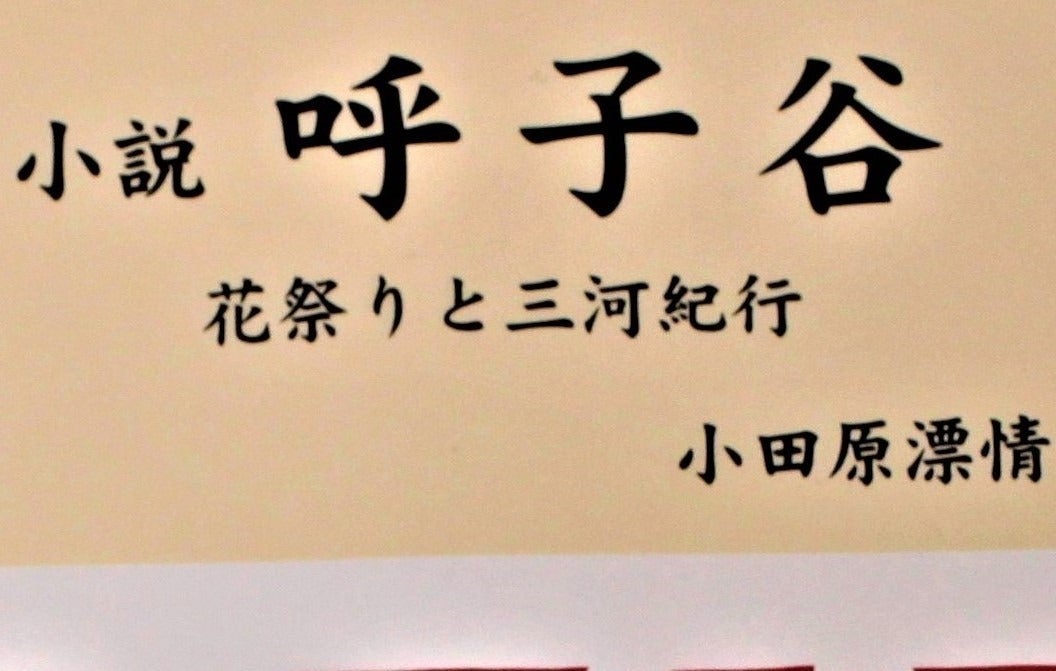 小説 呼子谷
花祭りと三河紀行
小田原漂情